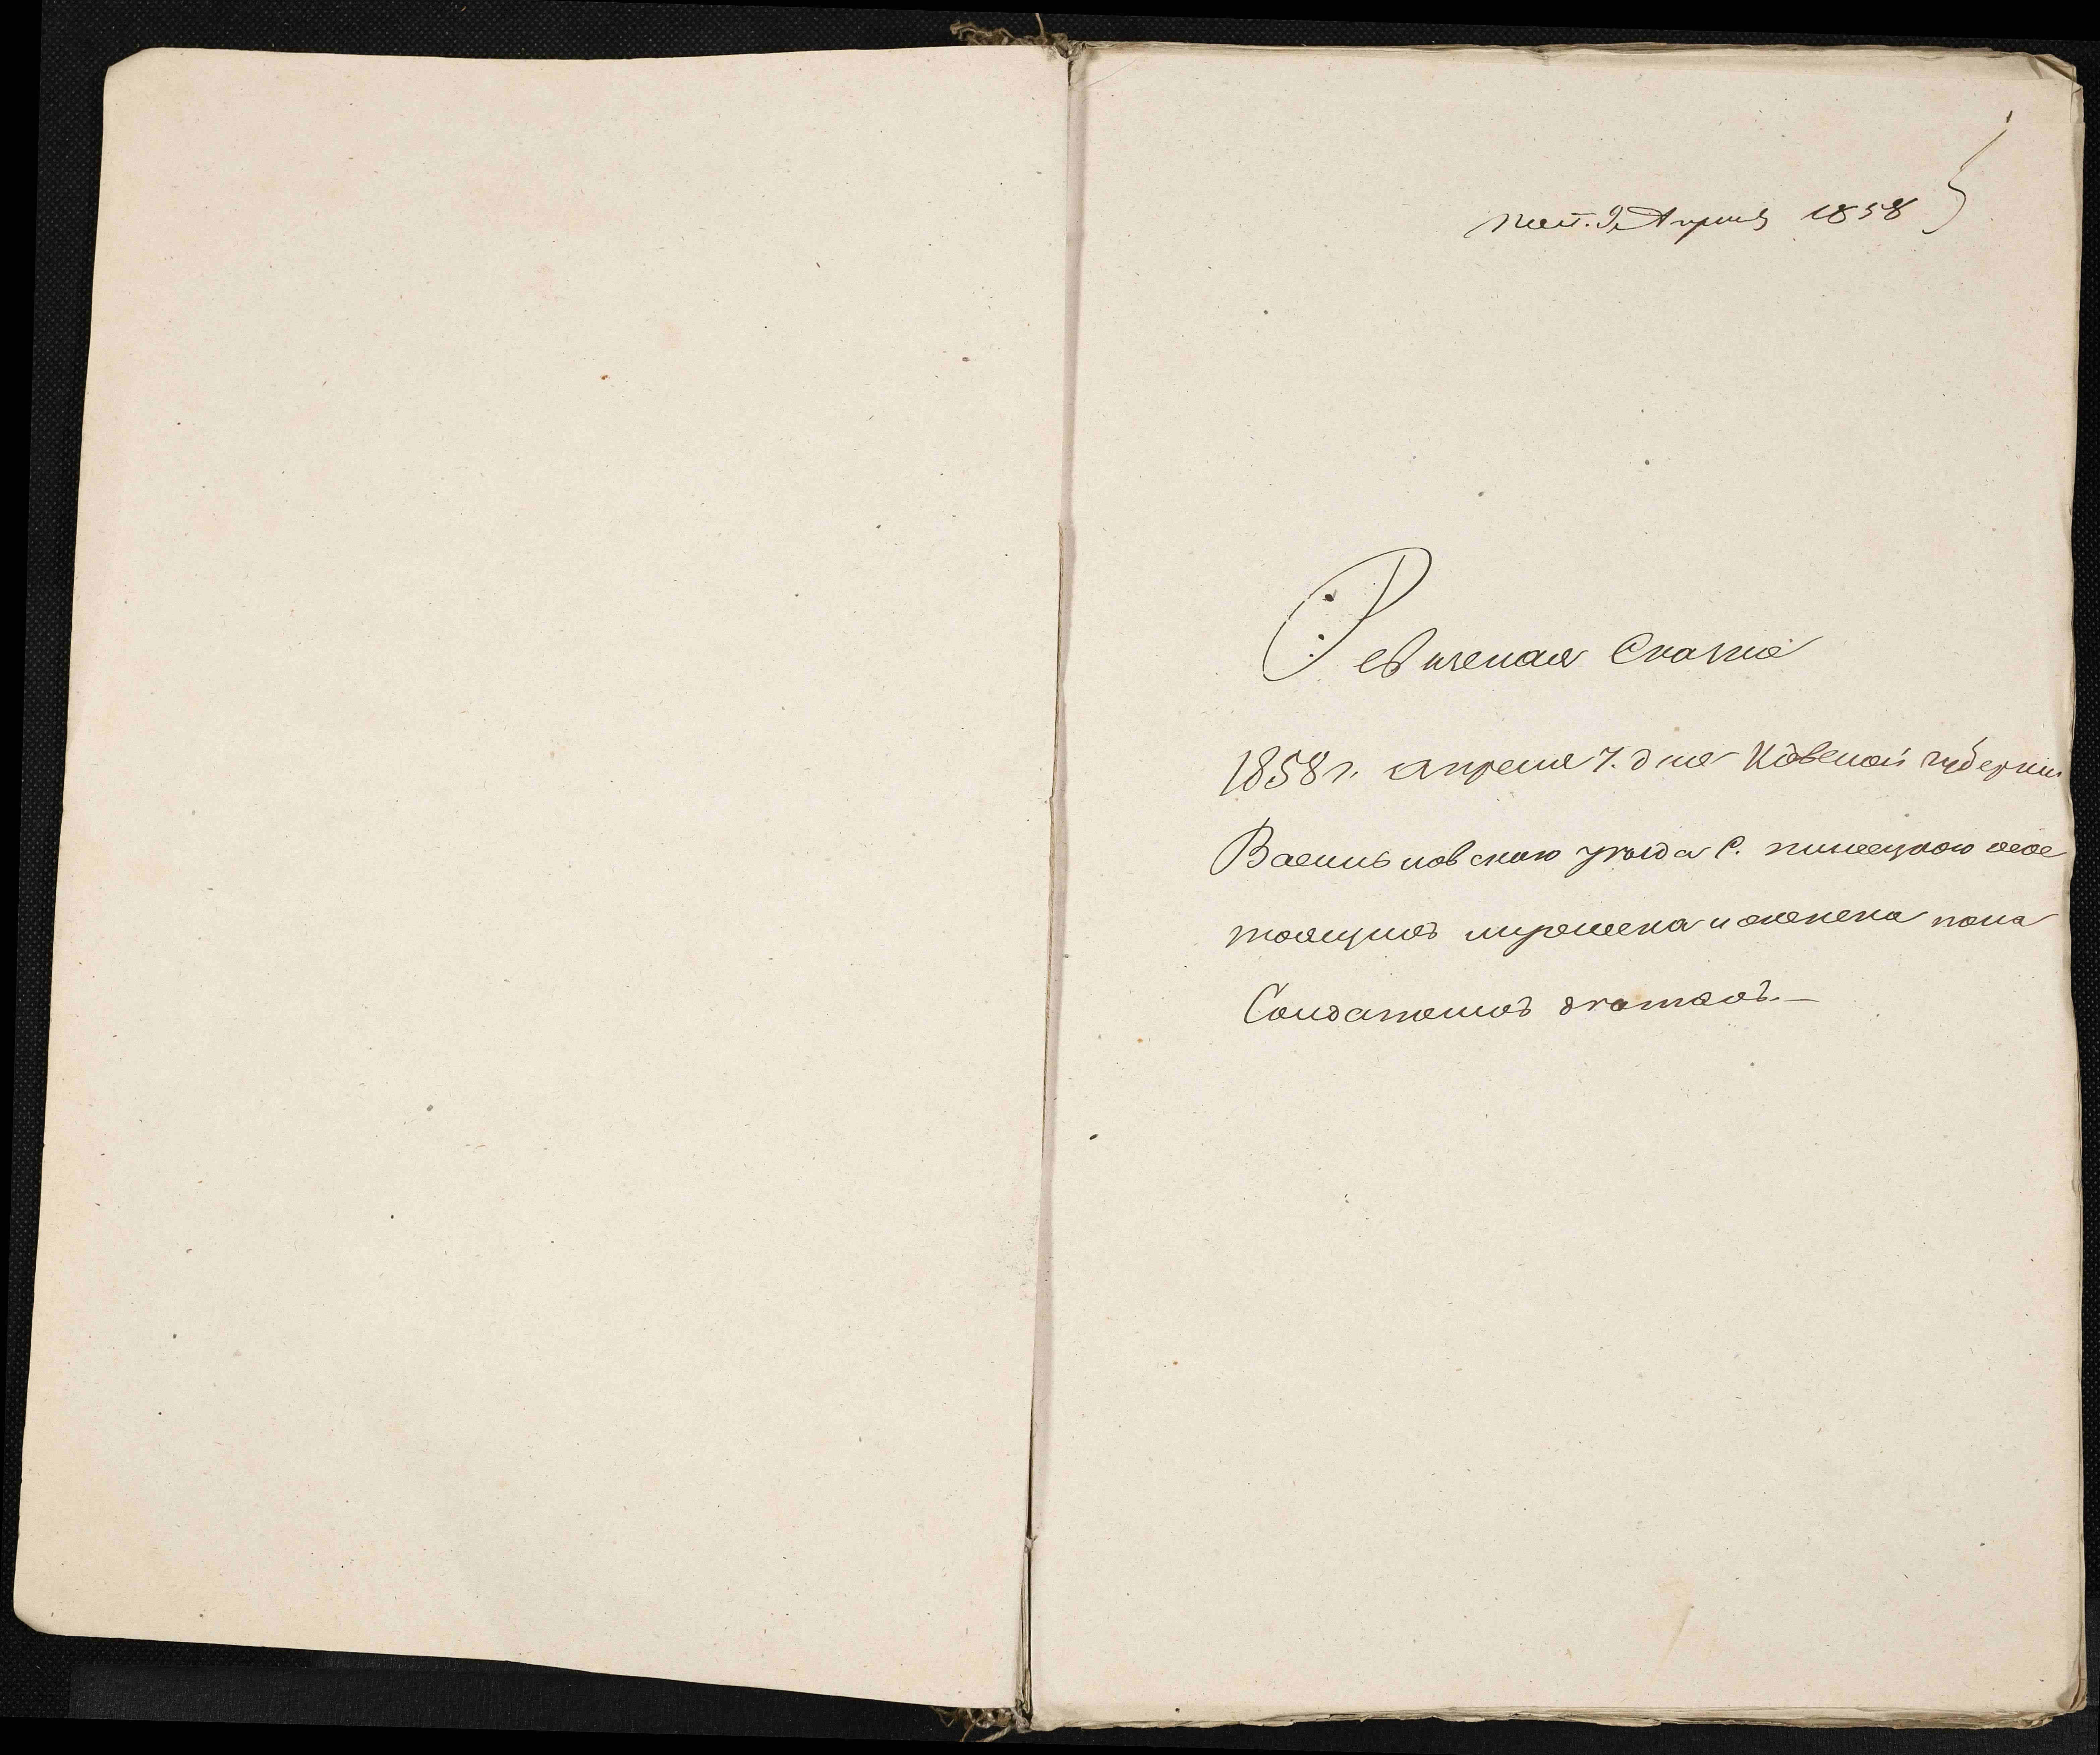 пол. 9 Апреля 1858
Ревизская Сказка
1858 г. апреля 7. дня Кіевской губерніи
Васильковскаго уезда С. состо
мужеска и женска пола
Солдатскихъ детей.—